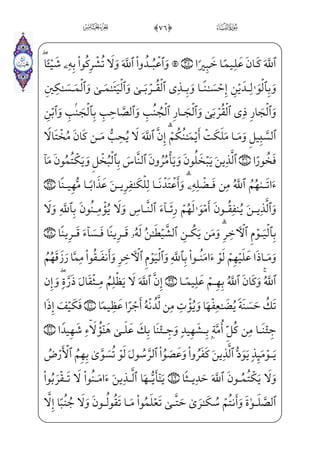 سُورَةُ النِّسَاءِ ﴿٧٦﴾ الجُزْءُ الخَامِسُ
ٱللَّهَ كَانَ عَلِيمًا خَبِيرًۭا ۝٣٥ ۞ وَٱعْبُدُوا۟ ٱللَّهَ وَلَا تُشْرِكُوا۟ بِهِۦ شَيْـًۭٔا ۖ
وَبِٱلْوَٰلِدَيْنِ إِحْسَـٰنًۭا وَبِذِى ٱلْقُرْبَىٰ وَٱلْيَتَـٰمَىٰ وَٱلْمَسَـٰكِينِ
وَٱلْجَارِ ذِى ٱلْقُرْبَىٰ وَٱلْجَارِ ٱلْجُنُبِ وَٱلصَّاحِبِ بِٱلْجَنۢبِ وَٱبْنِ
ٱلسَّبِيلِ وَمَا مَلَكَتْ أَيْمَـٰنُكُمْ ۗ إِنَّ ٱللَّهَ لَا يُحِبُّ مَن كَانَ مُخْتَالًۭا
فَخُورًا ۝٣٦ ٱلَّذِينَ يَبْخَلُونَ وَيَأْمُرُونَ ٱلنَّاسَ بِٱلْبُخْلِ وَيَكْتُمُونَ مَآ
ءَاتَىٰهُمُ ٱللَّهُ مِن فَضْلِهِۦ ۗ وَأَعْتَدْنَا لِلْكَـٰفِرِينَ عَذَابًۭا مُّهِينًۭا ۝٣٧
وَٱلَّذِينَ يُنفِقُونَ أَمْوَٰلَهُمْ رِئَآءَ ٱلنَّاسِ وَلَا يُؤْمِنُونَ بِٱللَّهِ وَلَا
بِٱلْيَوْمِ ٱلْـَٔاخِرِ ۗ وَمَن يَكُنِ ٱلشَّيْطَـٰنُ لَهُۥ قَرِينًۭا فَسَآءَ قَرِينًۭا ۝٣٨
وَمَاذَا عَلَيْهِمْ لَوْ ءَامَنُوا۟ بِٱللَّهِ وَٱلْيَوْمِ ٱلْـَٔاخِرِ وَأَنفَقُوا۟ مِمَّا رَزَقَهُمُ
ٱللَّهُ ۚ وَكَانَ ٱللَّهُ بِهِمْ عَلِيمًا ۝٣٩ إِنَّ ٱللَّهَ لَا يَظْلِمُ مِثْقَالَ ذَرَّةٍۢ ۖ وَإِن
تَكُ حَسَنَةًۭ يُضَـٰعِفْهَا وَيُؤْتِ مِن لَّدُنْهُ أَجْرًا عَظِيمًۭا ۝٤٠ فَكَيْفَ إِذَا
جِئْنَا مِن كُلِّ أُمَّةٍۭ بِشَهِيدٍۢ وَجِئْنَا بِكَ عَلَىٰ هَـٰٓؤُلَآءِ شَهِيدًۭا ۝٤١
يَوْمَئِذٍۢ يَوَدُّ ٱلَّذِينَ كَفَرُوا۟ وَعَصَوُا۟ ٱلرَّسُولَ لَوْ تُسَوَّىٰ بِهِمُ ٱلْأَرْضُ
وَلَا يَكْتُمُونَ ٱللَّهَ حَدِيثًۭا ۝٤٢ يَـٰٓأَيُّهَا ٱلَّذِينَ ءَامَنُوا۟ لَا تَقْرَبُوا۟
ٱلصَّلَوٰةَ وَأَنتُمْ سُكَـٰرَىٰ حَتَّىٰ تَعْلَمُوا۟ مَا تَقُولُونَ وَلَا جُنُبًا إِلَّا